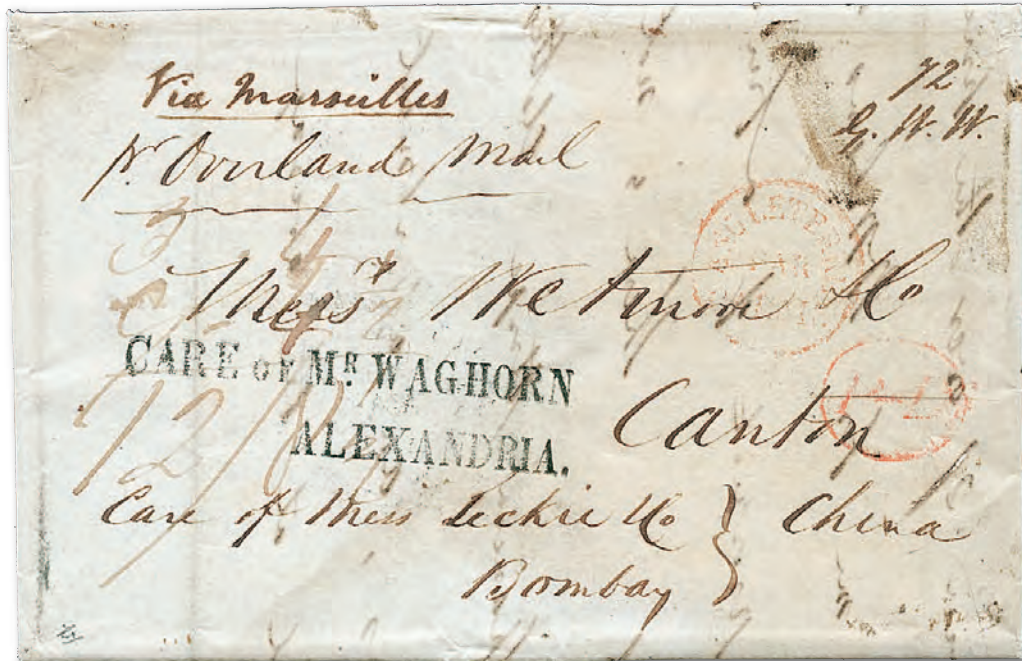 Via Marseilles
pr Overland Mail
72
G. W. W.
Messrs Wetmore & Co
CARE OF MR WAGHORN
ALEXANDRIA.
Canton
Care of Mess Leckie & Co } China
Bombay